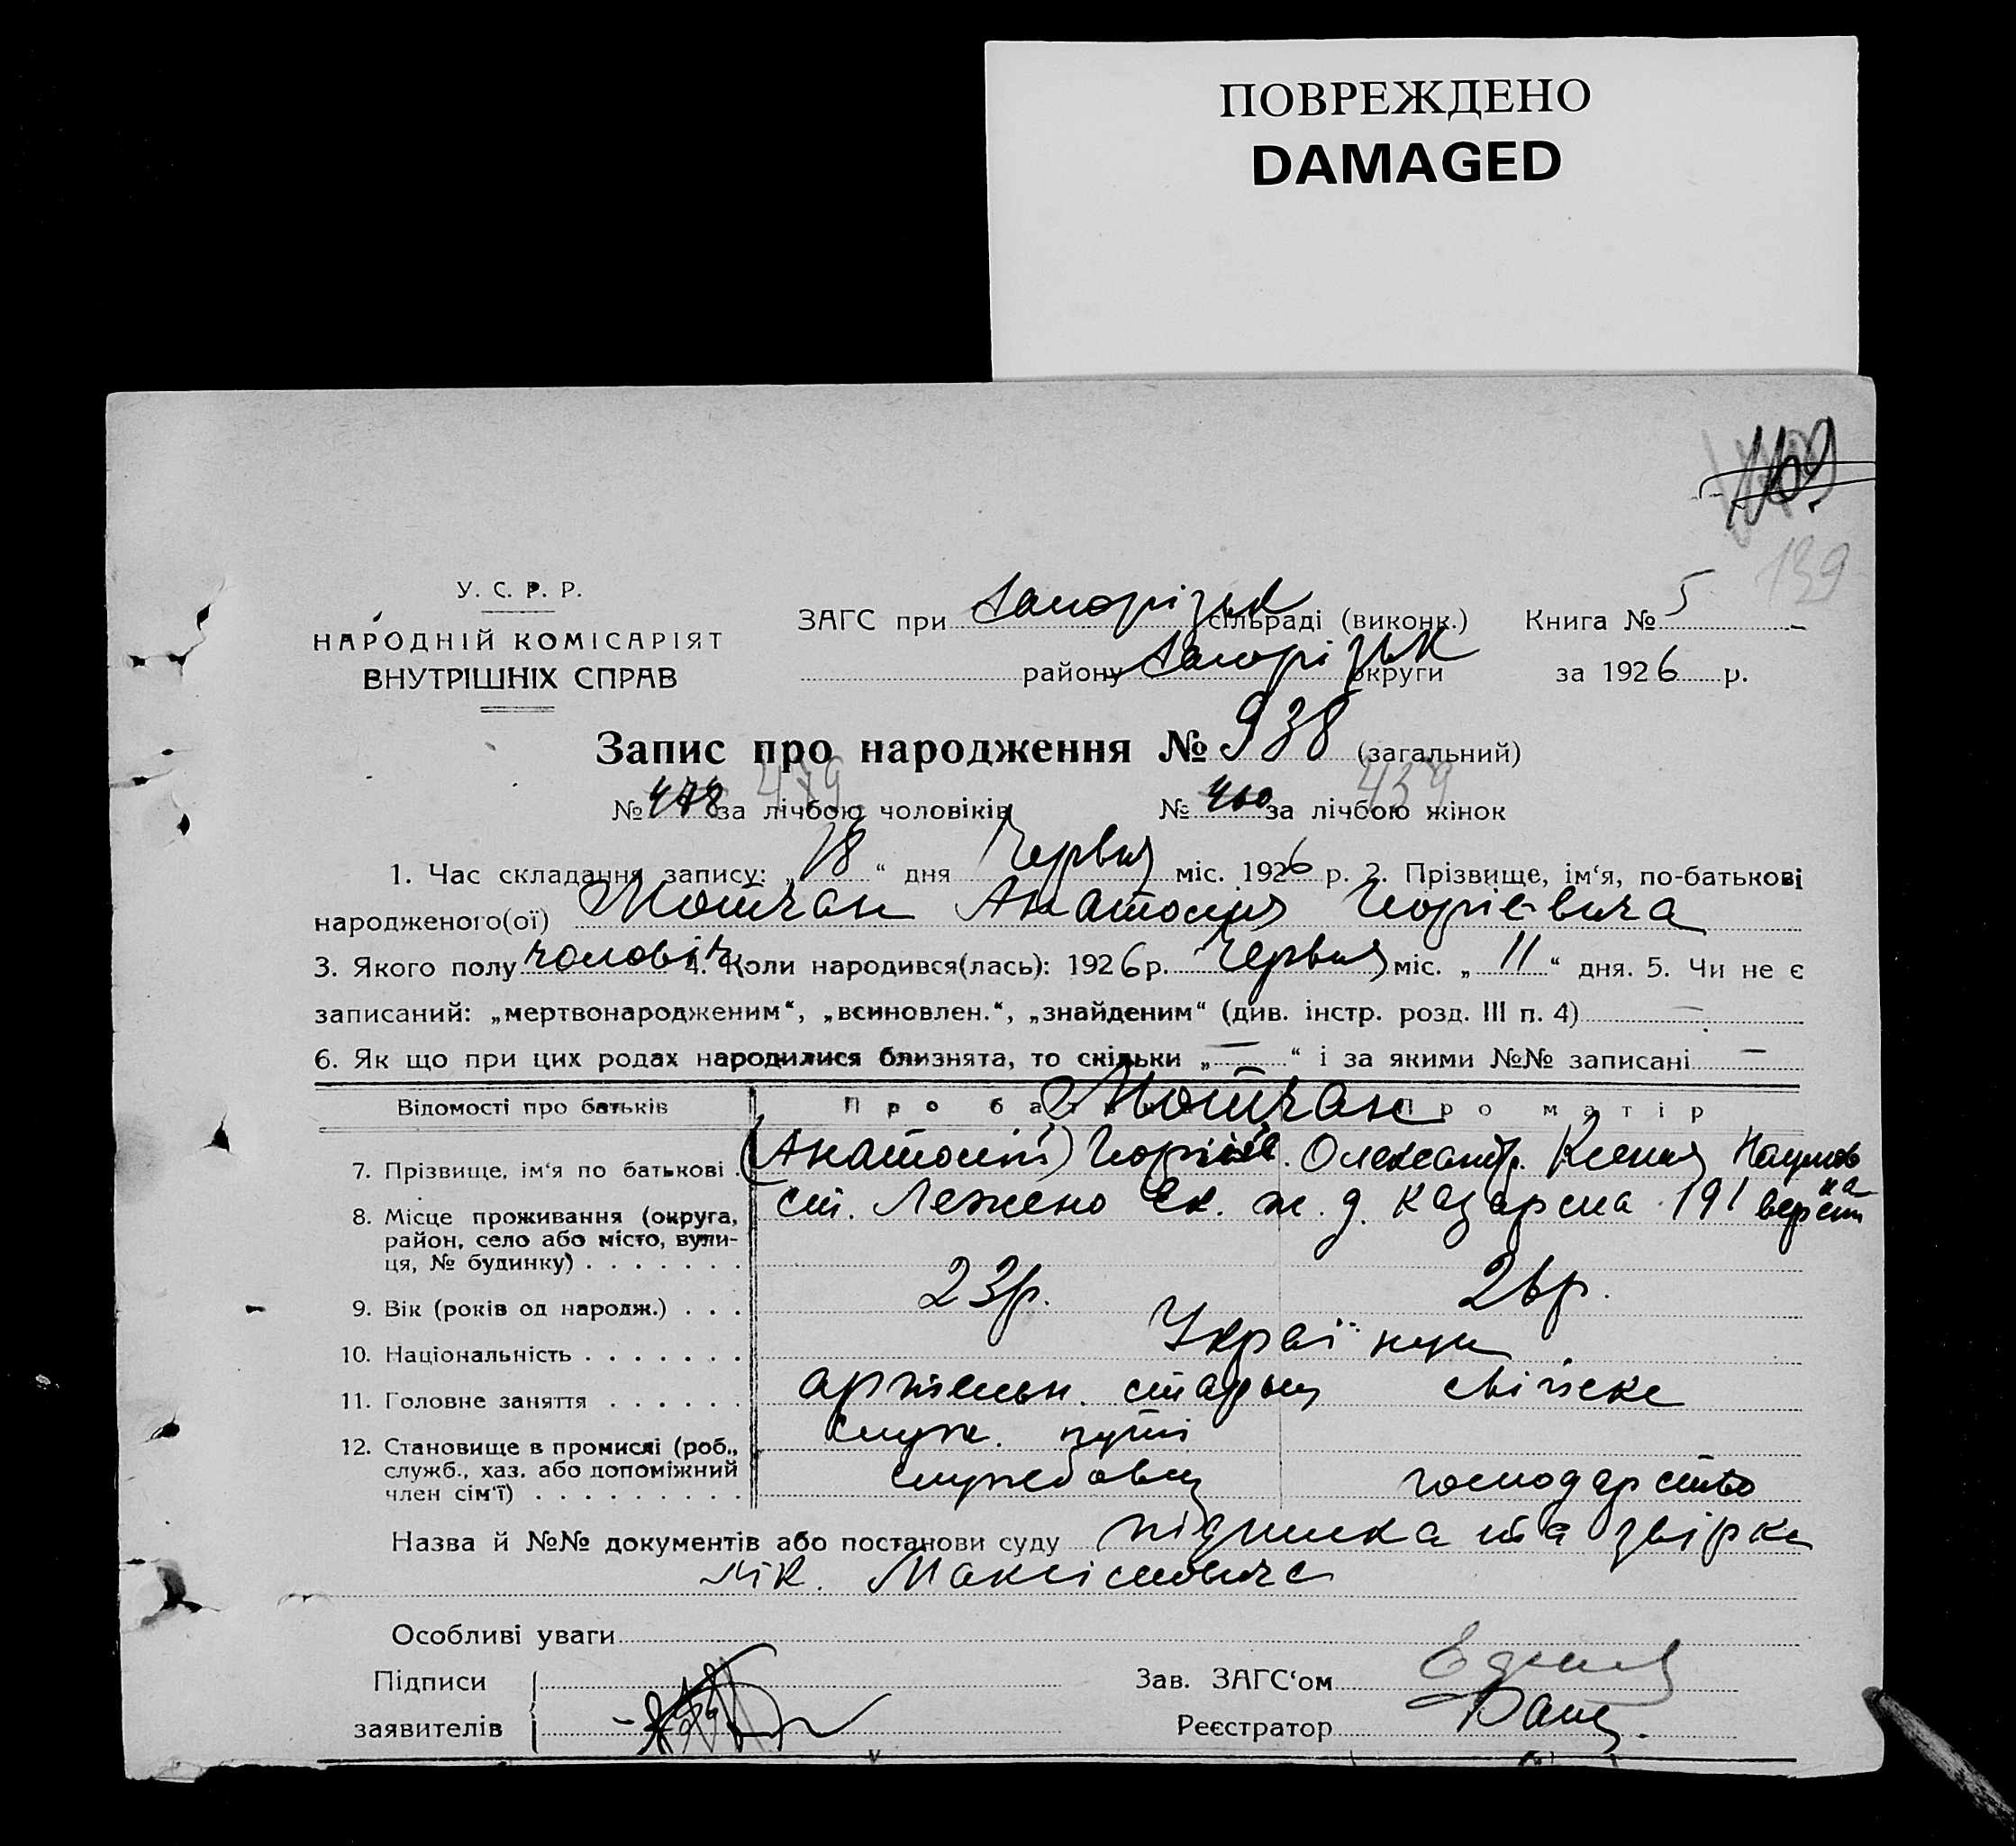 ПОВРЕЖДЕНО
DAMAGED
139
У. С. Р. Р.
НАРОДНІЙ КОМІСАРІЯТ
ВНУТРІШНІХ СПРАВ
ЗАГС при Запорізьк сільраді (виконк.) Книга № 5
району Запорізьк округи за 1926 р.
Запис про народження № 938 (загальний)
№ 478 479 за лічбою чоловіків № 460 459 за лічбою жінок
1. Час складання запису: „18“ дня Червня міс. 1926 р. 2. Прізвище, ім‘я, по-батькові
народженого(ої) Мотчан Анатолия Георгіевича
3. Якого полу чоловіч 4. Коли народився(лась): 1926 р. Червня міс. „11“ дня. 5. Чи не є
записаний: „мертвонародженим“, „всиновлен.“, „знайденим“ (див. інстр. розд. III п. 4) —
6. Як що при цих родах народилися близнята, то скільки „—“ і за якими №№ записані —
Відомості про батьків Про батька Про матір
Мотчан
7. Прізвище, ім‘я по батькові (Анатолій) Георгій Олександр. Ксения Наумовна
8. Місце проживання (округа, район, село або місто, вулиця, № будинку) ст. Лежено Ек. ж. д. казарма 191 верст
9. Вік (років од народж.) 23р. 26р.
10. Національність Українці
11. Головне заняття артельн. старш служ. путі хатнє
12. Становище в промислі (роб., служб., хаз. або допоміжний член сім‘ї) службовец господарство
Назва й №№ документів або постанови суду підписка та звірка
лік. Максімовича
Особливі уваги
Підписи
заявителів
Зав. ЗАГС‘ом
Реєстратор